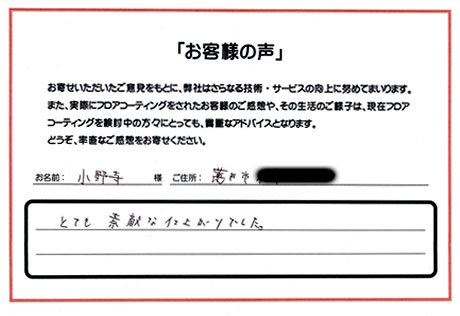 「お客様の声」
お寄せいただいたご意見をもとに、弊社はさらなる技術・サービスの向上に努めてまいります。
また、実際にフロアコーティングをされたお客様のご感想や、その生活のご様子は、現在フロア
コーティングを検討中の方々にとっても、貴重なアドバイスとなります。
どうぞ、率直なご感想をお寄せください。
お名前: 小野寺 様 ご住所: 市
とても 素敵な仕上がりでした。